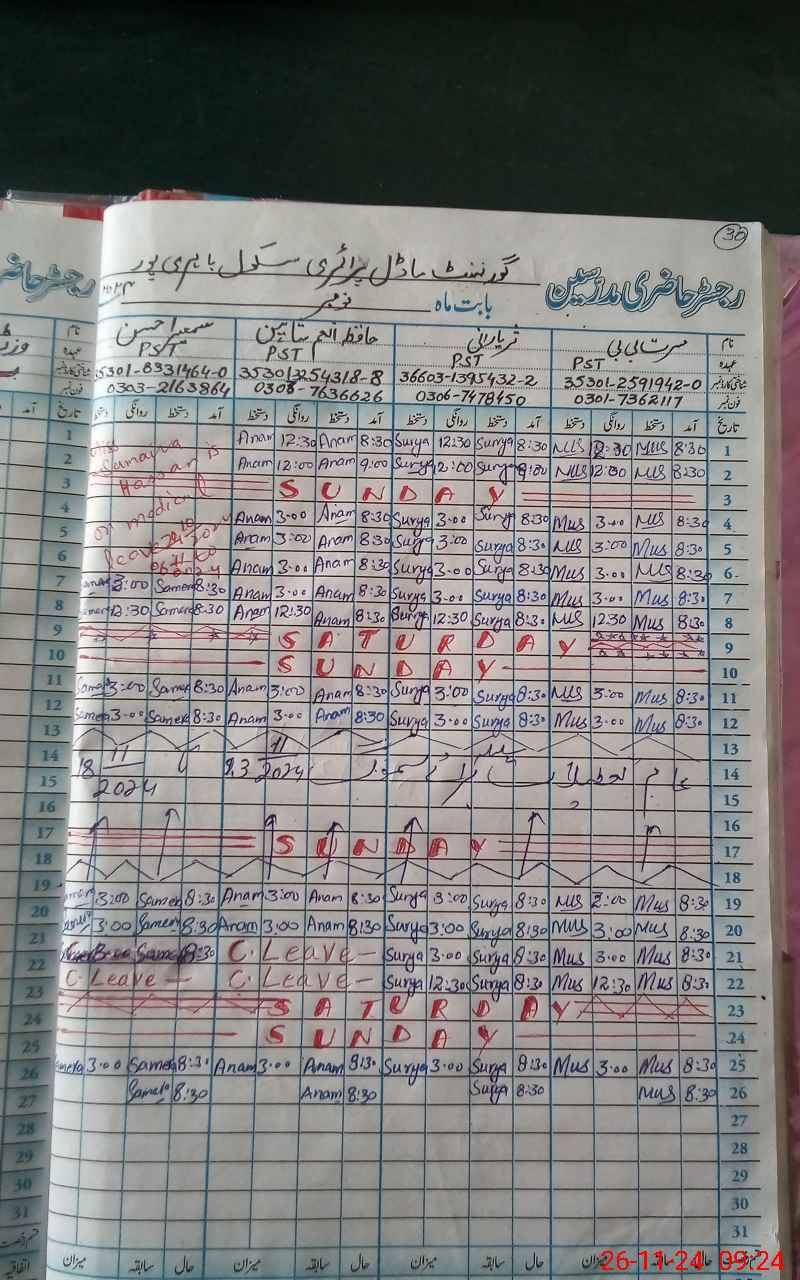 30
گورنمنٹ ماڈل پرائمری سکول باہری پور
رجسٹر حاضری مدرسین
بابت ماہ نومبر ۲۰۲۴
نام مسرت بی بی ثریا رانی حافظ انعم سمیرا حسن نام
عہدہ PST PST PST PST عہدہ
شناختی کارڈ نمبر 35301-2591942-0 36603-1395432-2 353013254318-8 35301-8331464-0
فون نمبر 0301-7362117 0306-7478450 0308-7636626 0303-2163864 فون نمبر
تاریخ آمد دستخط روانگی دستخط آمد دستخط روانگی دستخط آمد دستخط روانگی دستخط آمد دستخط روانگی دستخط تاریخ
1 Miss Anam 12:30 Anam 8:30 Surya 12:30 Surya 8:30 Mus 12:30 Mus 8:30 1
2 Sumaira Anam 12:00 Anam 9:00 Surya 12:00 Surya Mus 12:30 Mus 8:30 2
3 Hassan is SUNDAY 3
4 on medical Anam 3:00 Anam 8:30 Surya 3:00 Surya 8:30 Mus 3:00 Mus 8:30 4
5 leave Anam 3:00 Anam 8:30 Surya 3:00 Surya 8:30 Mus 3:00 Mus 8:30 5
6 Anam 3:00 Anam 8:30 Surya 3:00 Surya 8:30 Mus 3:00 Mus 8:30 6
7 3:00 Samera 8:30 Anam 3:00 Anam 8:30 Surya 3:00 Surya 8:30 Mus 3:00 Mus 8:30 7
8 12:30 Samera 8:30 Anam 12:30 Anam 8:30 Surya 12:30 Surya 8:30 Mus 12:30 Mus 8:30 8
9 SATURDAY 9
10 SUNDAY 10
11 3:00 Samera 8:30 Anam 3:00 Anam 8:30 Surya 3:00 Surya 8:30 Mus 3:00 Mus 8:30 11
12 Samera 3:00 Samera 8:30 Anam 3:00 Anam 8:30 Surya 3:00 Surya 8:30 Mus 3:00 Mus 8:30 12
13 13
14 عام تعطیلات 14
18 11 2024
15 15
16 16
17 SUNDAY 17
18 18
19 3:00 Samera 8:30 Anam 3:00 Anam 8:30 Surya 3:00 Surya 8:30 Mus 3:00 Mus 8:30 19
20 3:00 Samera 8:30 Anam 3:00 Anam 8:30 Surya 3:00 Surya 8:30 Mus 3:00 Mus 8:30 20
21 8:30 C. Leave Surya 3:00 Surya 8:30 Mus 3:00 Mus 8:30 21
22 C. Leave C. Leave Surya 12:30 Surya 8:30 Mus 12:30 Mus 8:30 22
23 SATURDAY 23
24 SUNDAY 24
25 Samera 3:00 Samera 8:30 Anam 3:00 Anam 8:30 Surya 3:00 Surya 8:30 Mus 3:00 Mus 8:30 25
26 Samera 8:30 Anam 8:30 Surya 8:30 Mus 8:30 26
27 27
28 28
29 29
30 30
31 31
حال سابقہ میزان حال سابقہ میزان حال سابقہ میزان حال سابقہ میزان
26-11-24 09:24